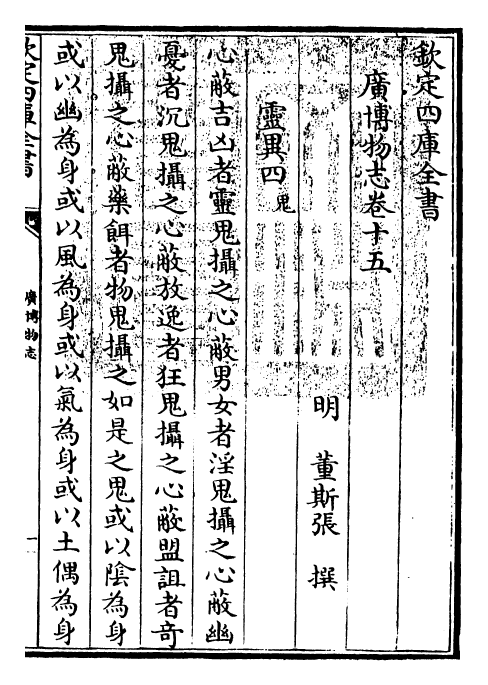 欽定四庫全書
廣博物志卷十五
明 董斯張 撰
靈異四 鬼
心蔽吉凶者靈鬼攝之心蔽男女者淫鬼攝之心蔽幽
憂者沉鬼攝之心蔽放逸者狂鬼攝之心蔽盟詛者奇
鬼攝之心蔽藥餌者物鬼攝之如是之鬼或以陰為身
或以幽為身或以風為身或以氣為身或以土偶為身
欽定四庫全書
廣博物志
一